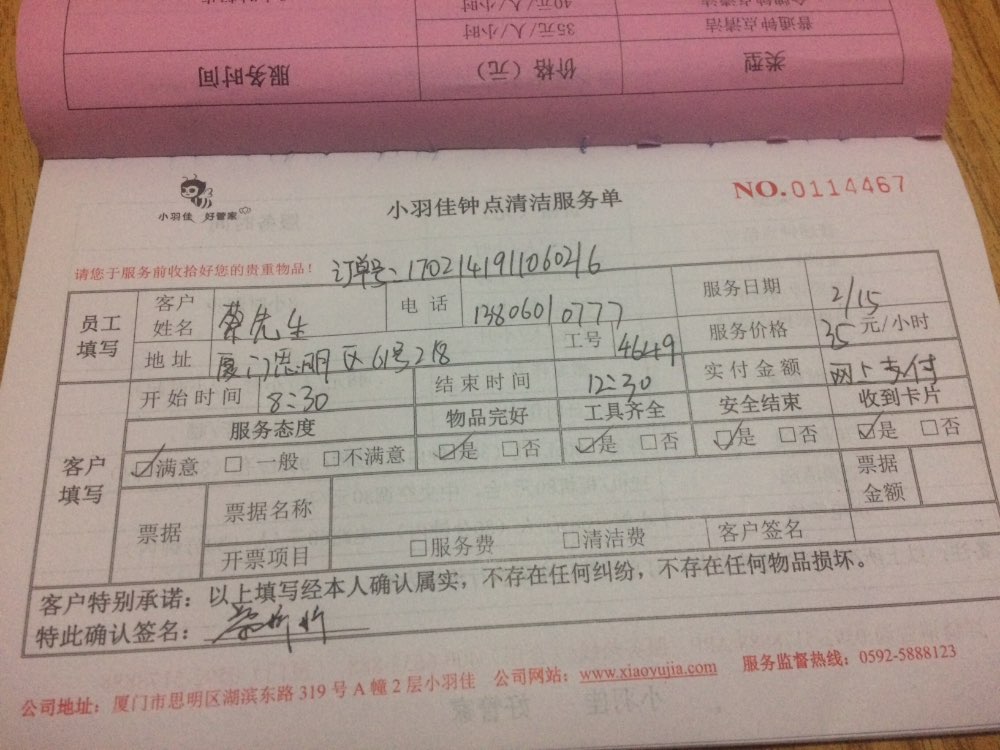 服务时间 价格（元） 类型
35元/人/小时 普通钟点清洁
40元/人/小时
小羽佳 好管家
小羽佳钟点清洁服务单
NO.0114467
请您于服务前收拾好您的贵重物品！
订单号：17021419110602 16
员工填写 客户姓名 先生 电话 13806010777 服务日期 2/15
地址 厦门思明区61号218 工号 46449 服务价格 35元/小时
开始时间 8:30 结束时间 12:30 实付金额 网上支付
客户填写 服务态度 物品完好 工具齐全 安全结束 收到卡片
☑满意 □一般 □不满意 ☑是 □否 ☑是 □否 ☑是 □否 ☑是 □否
票据 票据名称 票据金额
开票项目 □服务费 □清洁费 客户签名
客户特别承诺：以上填写经本人确认属实，不存在任何纠纷，不存在任何物品损坏。
特此确认签名：
公司地址：厦门市思明区湖滨东路319号A幢2层小羽佳 公司网站：www.xiaoyujia.com 服务监督热线：0592-5888123